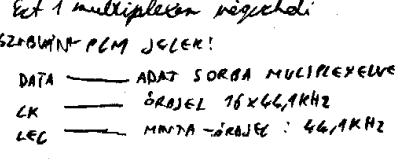 Ezt 1 multiplexer végzi
SZABVÁNY PCM JELEK!
DATA —— ADAT SORBA MULIPLEXELVE
CK —— ÓRAJEL 16x44,1KHz
LEC —— MINTA-ÓRAJEL : 44,1KHz